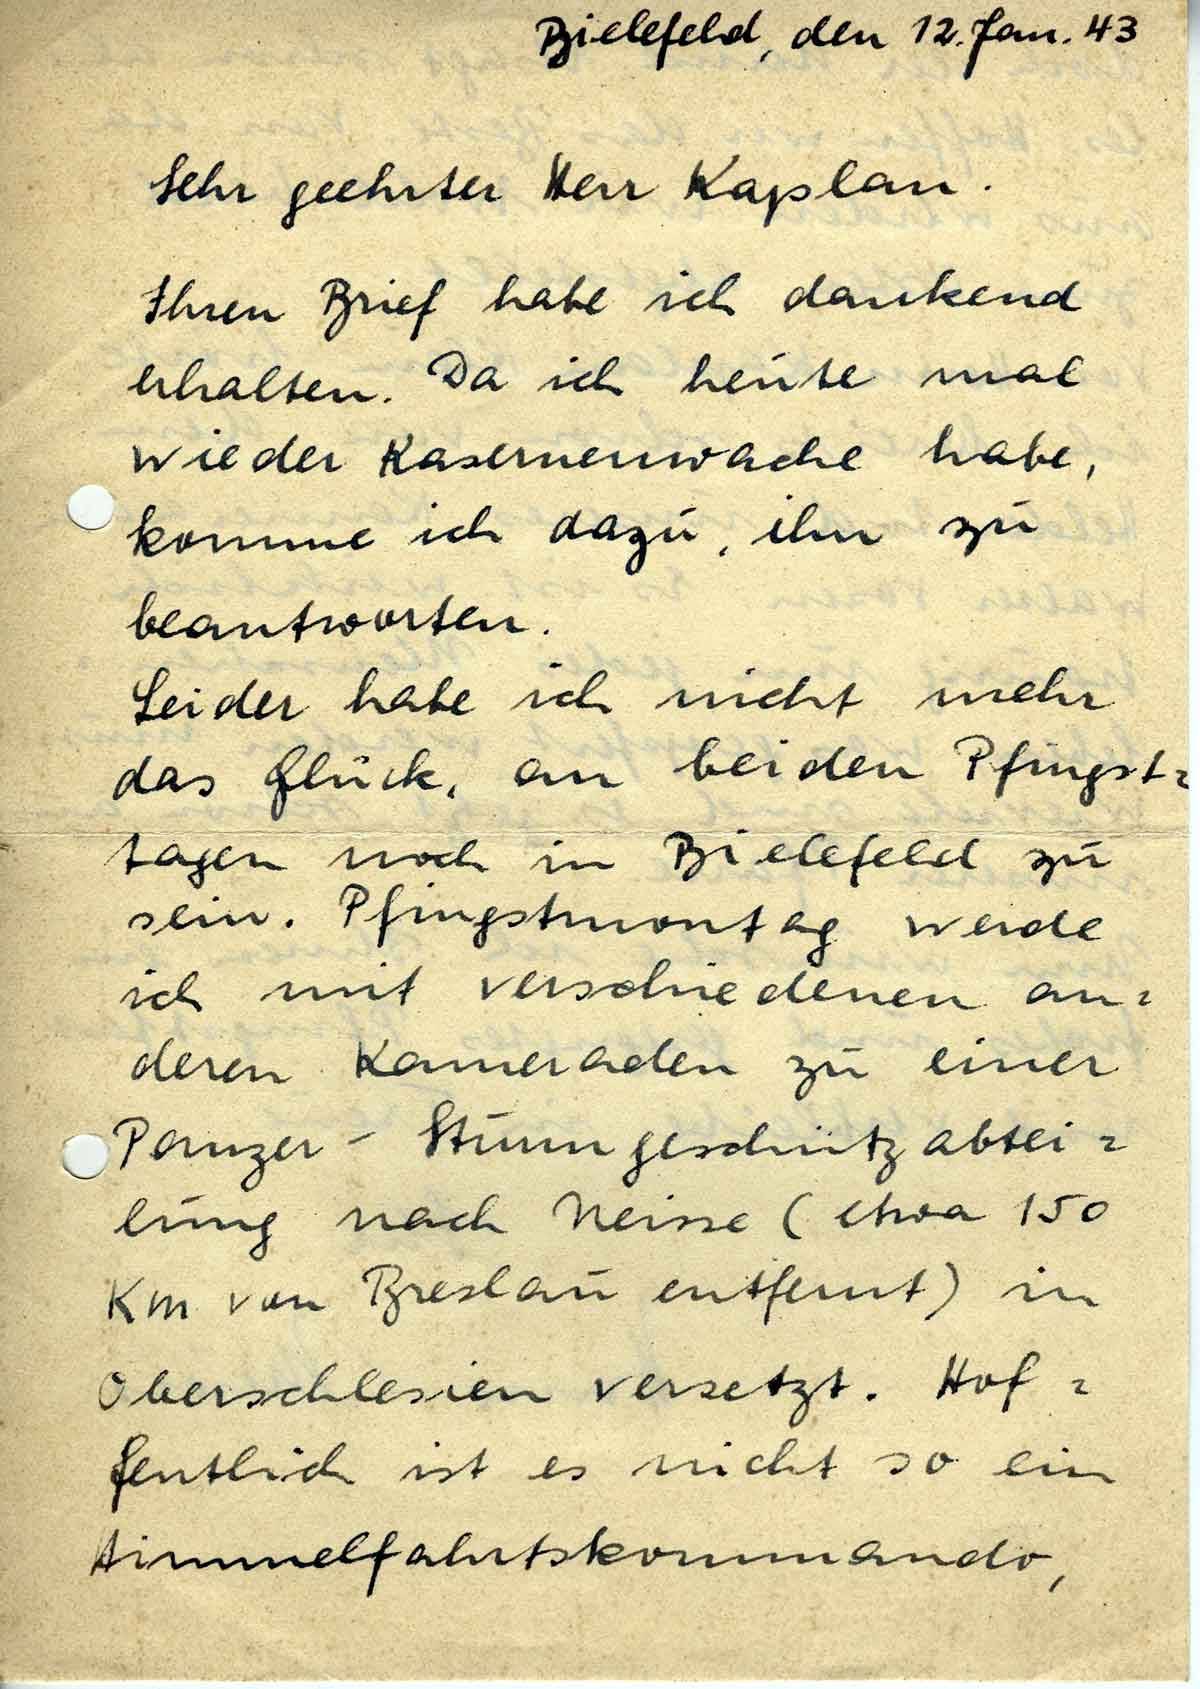 Bielefeld, den 12. Jan. 43
Sehr geehrter Herr Kaplan.
Ihren Brief habe ich dankend
erhalten. Da ich heute mal
wieder Kasernenwache habe,
komme ich dazu, ihn zu
beantworten.
Leider habe ich nicht mehr
das Glück, an beiden Pfingst=
tagen noch in Bielefeld zu
sein. Pfingstmontag werde
ich mit verschiedenen an=
deren Kameraden zu einer
Panzer - Sturmgeschützabtei=
lung nach Neisse (etwa 150
Km von Breslau entfernt) in
Oberschlesien versetzt. Hof=
fentlich ist es nicht so ein
Himmelfahrtskommando,